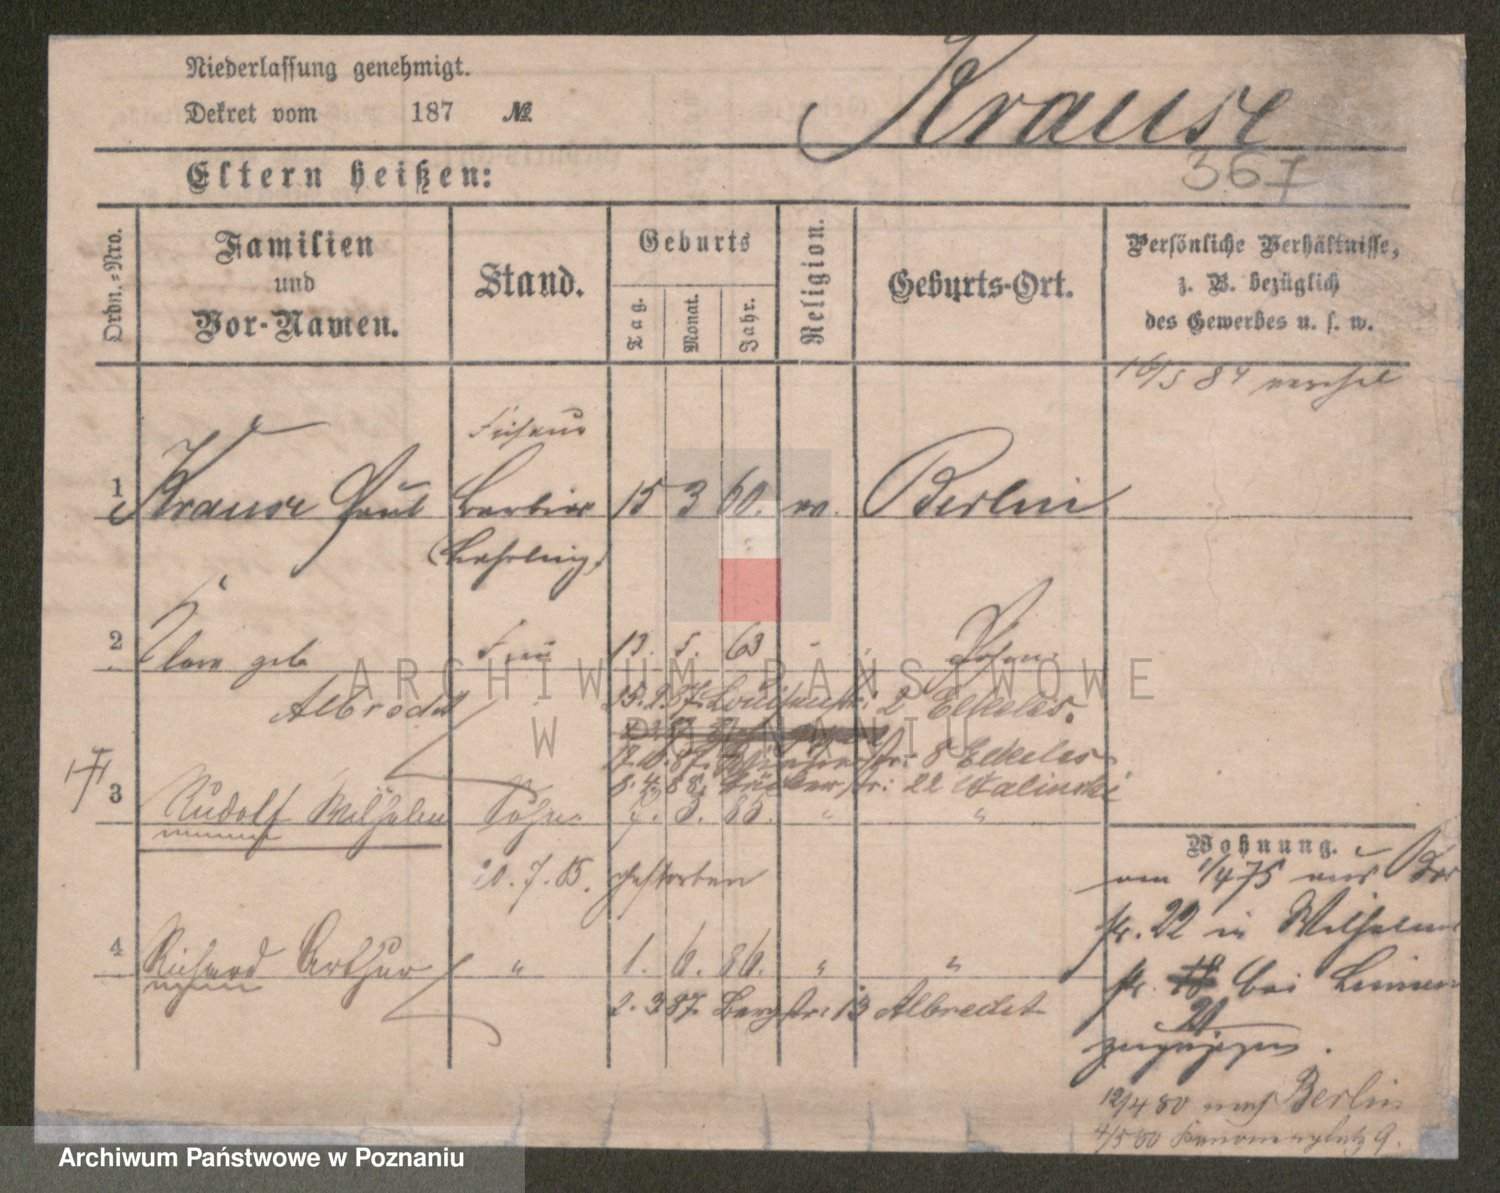 Niederlassung genehmigt.
Dekret vom 187 №
Krause
367
Eltern heißen:
Ordn.-Nro.
Familien
und
Vor-Namen.
Stand.
Geburts
Tag.
Monat.
Jahr.
Religion.
Geburts-Ort.
Persönliche Verhältnisse,
z. B. bezüglich
des Gewerbes u. s. w.
16/5 84
Friseur
1 Krause Paul Barbier 15 3 60. ev. Berlin
(Lehrling)
2 Clara geb Frau 13. 5. 63 " Posen
Albrecht
15.2.87. Louisenstr: 2 Eckeles.
8 Eckeles
8. 4. 88. Bäckerstr: 22 Walinski
3 Rudolf Wilhelm Sohn 7. 3. 85. " "
20. 7. 85. gestorben
4 Richard Arthur " 1. 6. 86. " "
2. 3. 87. Bergstr: 13 Albrecht
Wohnung.
1/4 75 aus
str. 22 in Wilhelm
str. 18 bei
20
zugezogen.
12/4 80 nach Berlin
4/5 80 Kanonenplatz 9.
ARCHIWUM PAŃSTWOWE
W POZNANIU
Archiwum Państwowe w Poznaniu